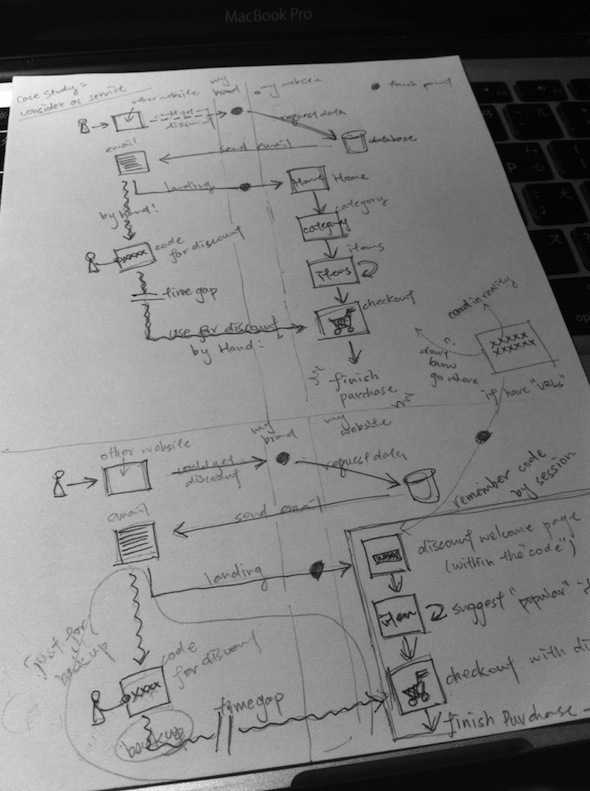 MacBook Pro
case study:
consider as service
other website
my
brand
my website
touch point
could get
discount
request data
email
send email
database
landing
Home
Home
by hand!
category
category
xxxxx
code
for discount
items
items
time gap
checkout
use for discount
by Hand!
finish
purchase
xxxxx
xxxxxx
don't
know
go where
if have "URLs"
other website
my
brand
my
website
could get
discount
request data
remember code
by session
email
send email
discount welcome page
(within the "code")
landing
item
suggest "popular"
just for
backup
code
for discount
xxxx
checkout with
backup
time gap
finish purchase